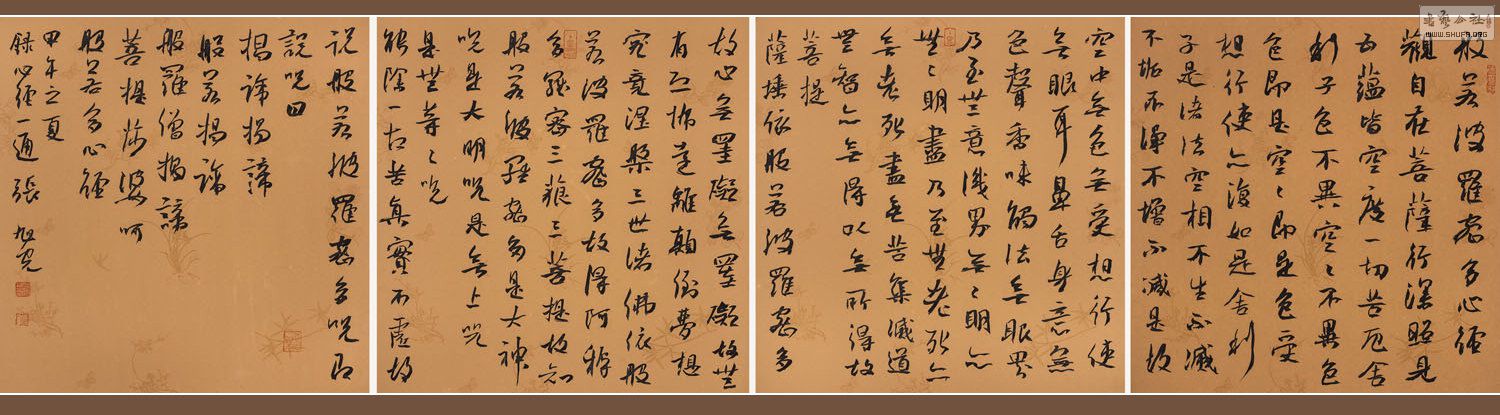 般若波羅蜜多心經
觀自在菩薩行深照見
五蘊皆空度一切苦厄舍
利子色不異空〻不異色
色即是空〻即是色受
想行使亦復如是舍利
子是諸法空相不生不滅
不垢不淨不增不減是故
空中無色無受想行使
無眼耳鼻舌身意無
色聲香味觸法無眼界
乃至無意識界無〻明亦
無〻明盡乃至無老死亦
無老死盡無苦集滅道
無智亦無得以無所得故
菩提
薩埵依般若波羅蜜多
故心無罣礙無罣礙故無
有恐怖遠離顛倒夢想
究竟涅槃三世諸佛依般
若波羅蜜多故得阿耨
多羅密三藐三菩提故知
般若波羅蜜多是大神
咒是大明咒是無上咒
是無等〻咒
能除一切苦真實不虛故
說般若波羅蜜多咒即
說咒曰
揭諦揭諦
般若揭諦
般羅僧揭諦
菩提薩婆呵
般若多心經
甲午之夏
錄心經一通 張旭光
WWW.SHUFA.ORG